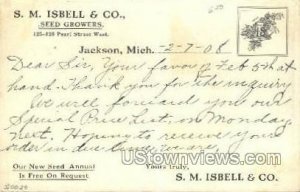 S. M. ISBELL & CO.,
SEED GROWERS,
125-128 Pearl Street West.
Jackson, Mich. 2-7-08
Dear Sir, Your favor of Feb 5th at
hand. Thank you for the inquiry
We will forward you our
Special Price List on Monday
next. Hoping to receive your
order in due time, we are,
Our New Seed Annual
Is Free On Request
Yours truly,
S. M. ISBELL & CO.
© HipPostcard.com